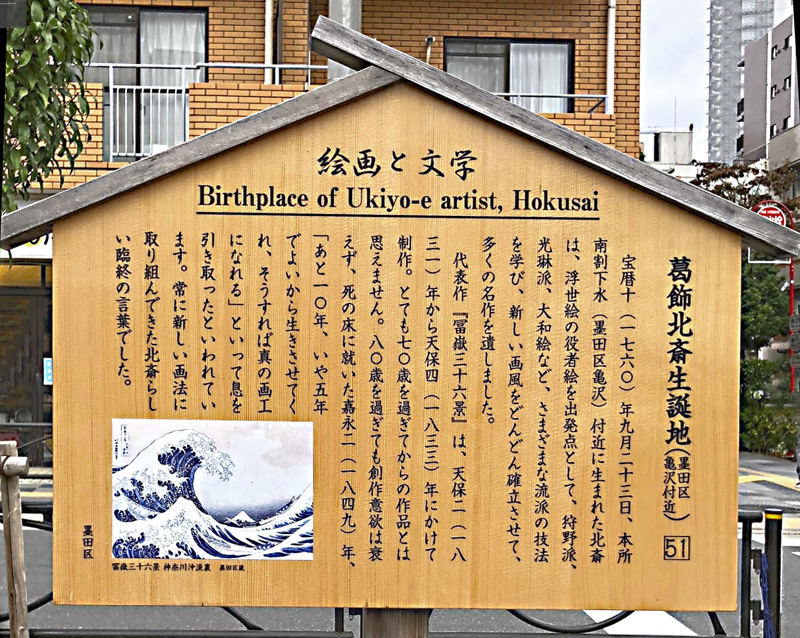 絵画と文学
Birthplace of Ukiyo-e artist, Hokusai
葛飾北斎生誕地（墨田区亀沢付近）51
宝暦十（一七六〇）年九月二十三日、本所
南割下水（墨田区亀沢）付近に生まれた北斎
は、浮世絵の役者絵を出発点として、狩野派、
光琳派、大和絵など、さまざまな流派の技法
を学び、新しい画風をどんどん確立させて、
多くの名作を遺しました。
代表作『冨嶽三十六景』は、天保二（一八
三一）年から天保四（一八三三）年にかけて
制作。とても七〇歳を過ぎてからの作品とは
思えません。八〇歳を過ぎても創作意欲は衰
えず、死の床に就いた嘉永二（一八四九）年、
「あと一〇年、いや五年
でよいから生きさせてく
れ、そうすれば真の画工
になれる」といって息を
引き取ったといわれてい
ます。常に新しい画法に
取り組んできた北斎らし
い臨終の言葉でした。
冨嶽三十六景 神奈川沖浪裏 墨田区蔵
墨田区